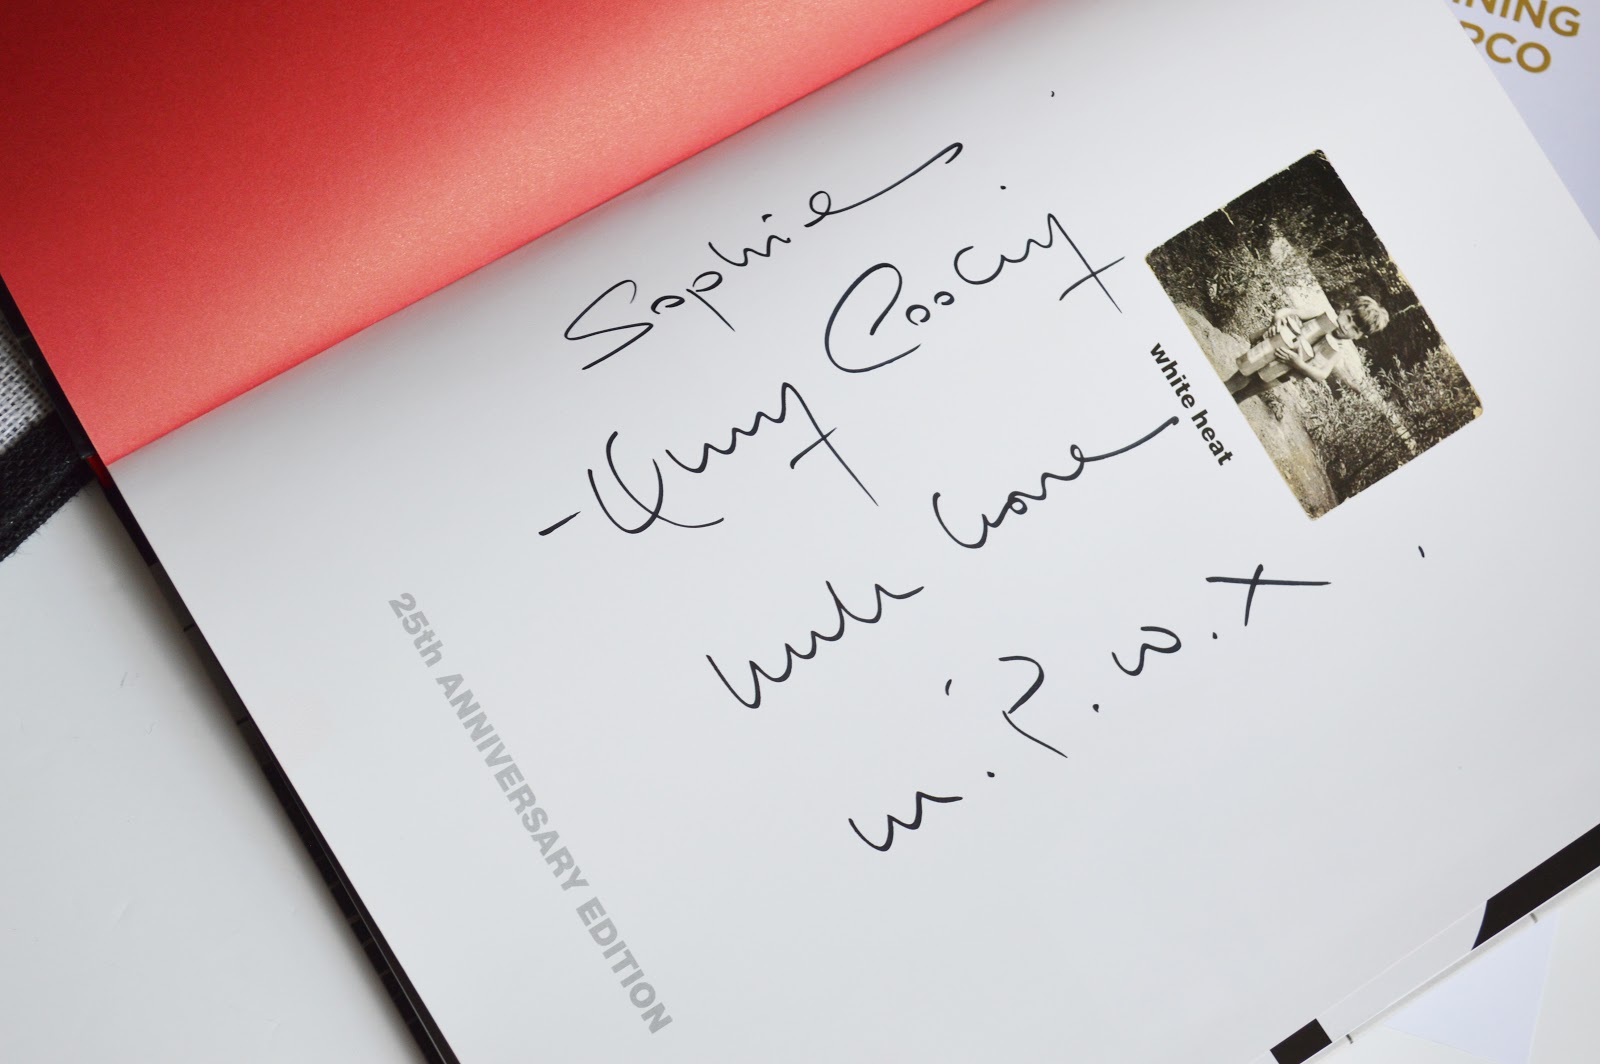 NING
RCO
Sophie
- Enjoy Cooking
with love
M.P.W. X
white heat
25th ANNIVERSARY EDITION